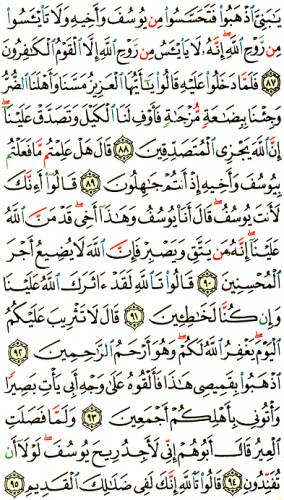 يَٰبَنِيَّ ٱذۡهَبُواْ فَتَحَسَّسُواْ مِن يُوسُفَ وَأَخِيهِ وَلَا تَاْيۡـَٔسُواْ
مِن رَّوۡحِ ٱللَّهِۖ إِنَّهُۥ لَا يَاْيۡـَٔسُ مِن رَّوۡحِ ٱللَّهِ إِلَّا ٱلۡقَوۡمُ ٱلۡكَٰفِرُونَ
٨٧ فَلَمَّا دَخَلُواْ عَلَيۡهِ قَالُواْ يَٰٓأَيُّهَا ٱلۡعَزِيزُ مَسَّنَا وَأَهۡلَنَا ٱلضُّرُّ
وَجِئۡنَا بِبِضَٰعَةٖ مُّزۡجَىٰةٖ فَأَوۡفِ لَنَا ٱلۡكَيۡلَ وَتَصَدَّقۡ عَلَيۡنَآۖ
إِنَّ ٱللَّهَ يَجۡزِي ٱلۡمُتَصَدِّقِينَ ٨٨ قَالَ هَلۡ عَلِمۡتُم مَّا فَعَلۡتُم
بِيُوسُفَ وَأَخِيهِ إِذۡ أَنتُمۡ جَٰهِلُونَ ٨٩ قَالُوٓاْ أَءِنَّكَ
لَأَنتَ يُوسُفُۖ قَالَ أَنَا۠ يُوسُفُ وَهَٰذَآ أَخِيۖ قَدۡ مَنَّ ٱللَّهُ
عَلَيۡنَآۖ إِنَّهُۥ مَن يَتَّقِ وَيَصۡبِرۡ فَإِنَّ ٱللَّهَ لَا يُضِيعُ أَجۡرَ
ٱلۡمُحۡسِنِينَ ٩٠ قَالُواْ تَٱللَّهِ لَقَدۡ ءَاثَرَكَ ٱللَّهُ عَلَيۡنَا
وَإِن كُنَّا لَخَٰطِـِٔينَ ٩١ قَالَ لَا تَثۡرِيبَ عَلَيۡكُمُ
ٱلۡيَوۡمَۖ يَغۡفِرُ ٱللَّهُ لَكُمۡۖ وَهُوَ أَرۡحَمُ ٱلرَّٰحِمِينَ ٩٢
ٱذۡهَبُواْ بِقَمِيصِي هَٰذَا فَأَلۡقُوهُ عَلَىٰ وَجۡهِ أَبِي يَأۡتِ بَصِيرٗا
وَأۡتُونِي بِأَهۡلِكُمۡ أَجۡمَعِينَ ٩٣ وَلَمَّا فَصَلَتِ
ٱلۡعِيرُ قَالَ أَبُوهُمۡ إِنِّي لَأَجِدُ رِيحَ يُوسُفَۖ لَوۡلَآ أَن
تُفَنِّدُونِ ٩٤ قَالُواْ تَٱللَّهِ إِنَّكَ لَفِي ضَلَٰلِكَ ٱلۡقَدِيمِ ٩٥